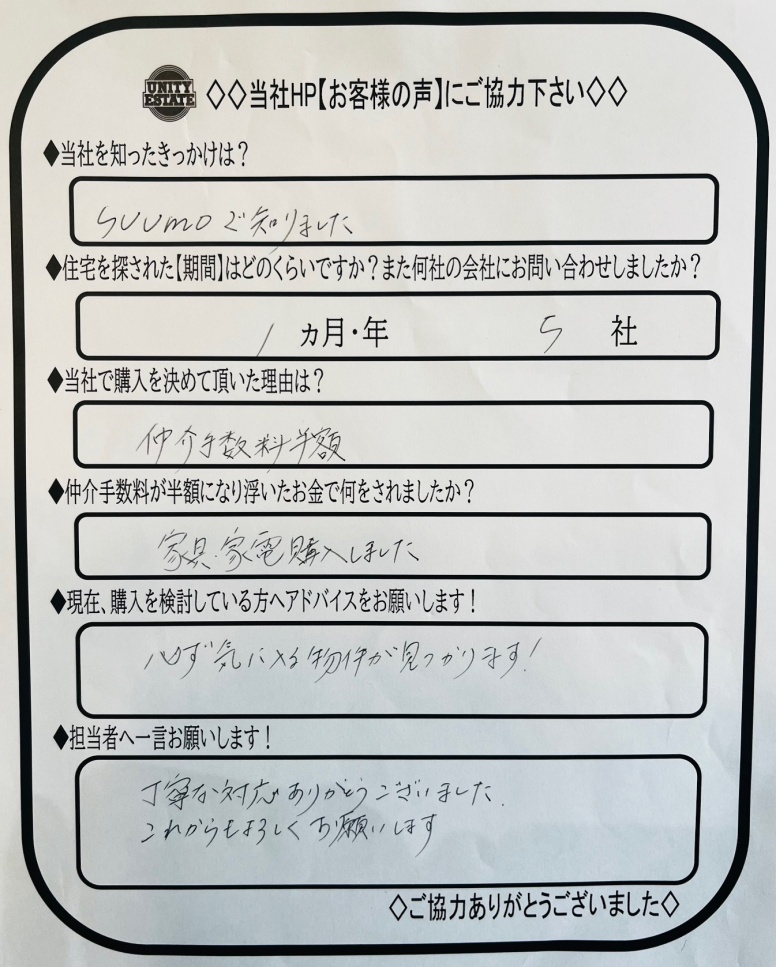 UNITY
ESTATE
◇◇当社HP【お客様の声】にご協力下さい◇◇
◆当社を知ったきっかけは？
SUUMOで知りました
◆住宅を探された【期間】はどのくらいですか？また何社の会社にお問い合わせしましたか？
1 ヵ月・年 5 社
◆当社で購入を決めて頂いた理由は？
仲介手数料半額
◆仲介手数料が半額になり浮いたお金で何をされましたか？
家具・家電購入しました
◆現在、購入を検討している方へアドバイスをお願いします！
必ず気に入る物件が見つかります！
◆担当者へ一言お願いします！
丁寧な対応ありがとうございました.
これからもよろしくお願いします
◇ご協力ありがとうございました◇